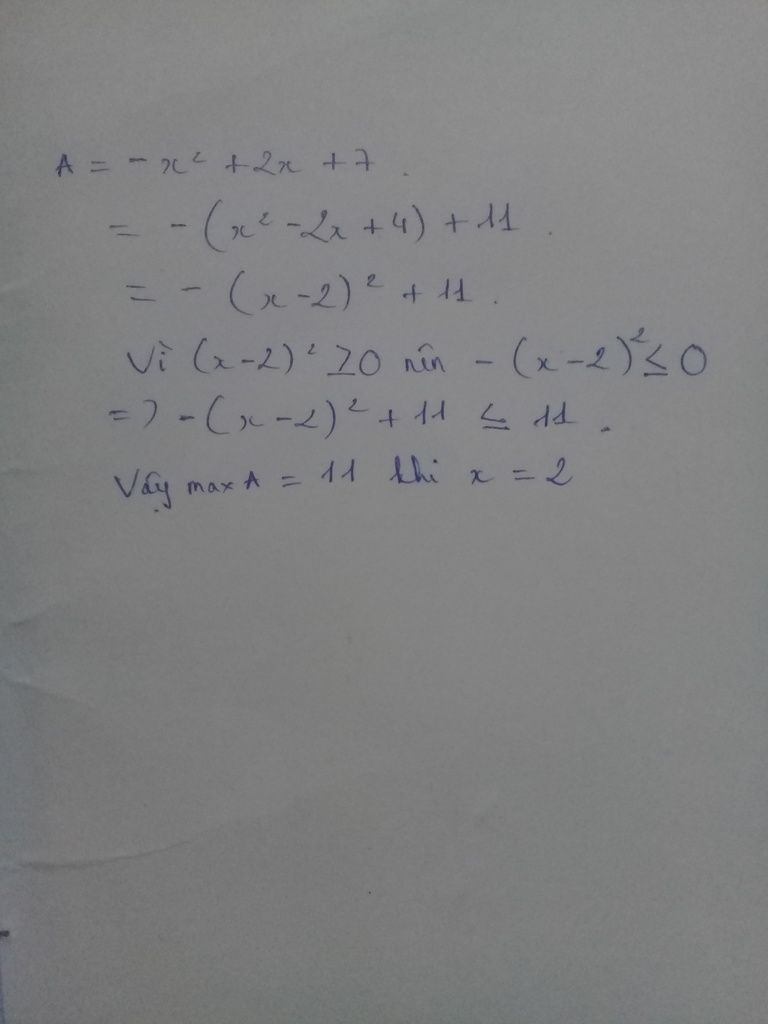 A = - x² + 2x + 7 .
= - (x² - 2x + 4) + 11 .
= - (x - 2)² + 11 .
Vì (x - 2)² ≥ 0 nên - (x - 2)² ≤ 0
=> - (x - 2)² + 11 ≤ 11 .
Vậy max A = 11 khi x = 2